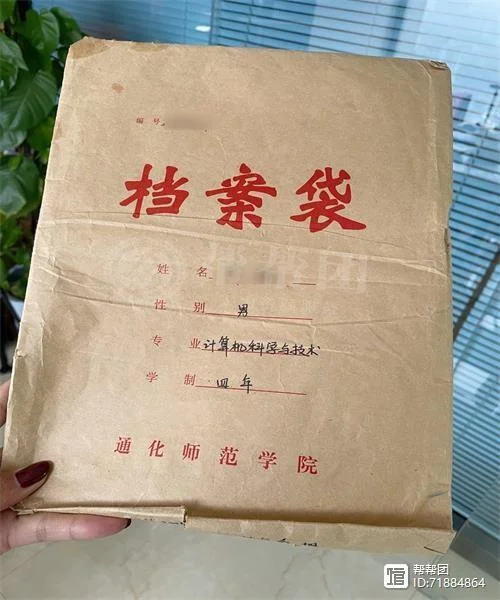 编号
档案袋
姓名
性别 男
专业 计算机科学与技术
学制 四年
通化师范学院
帮帮团
ID:71884864